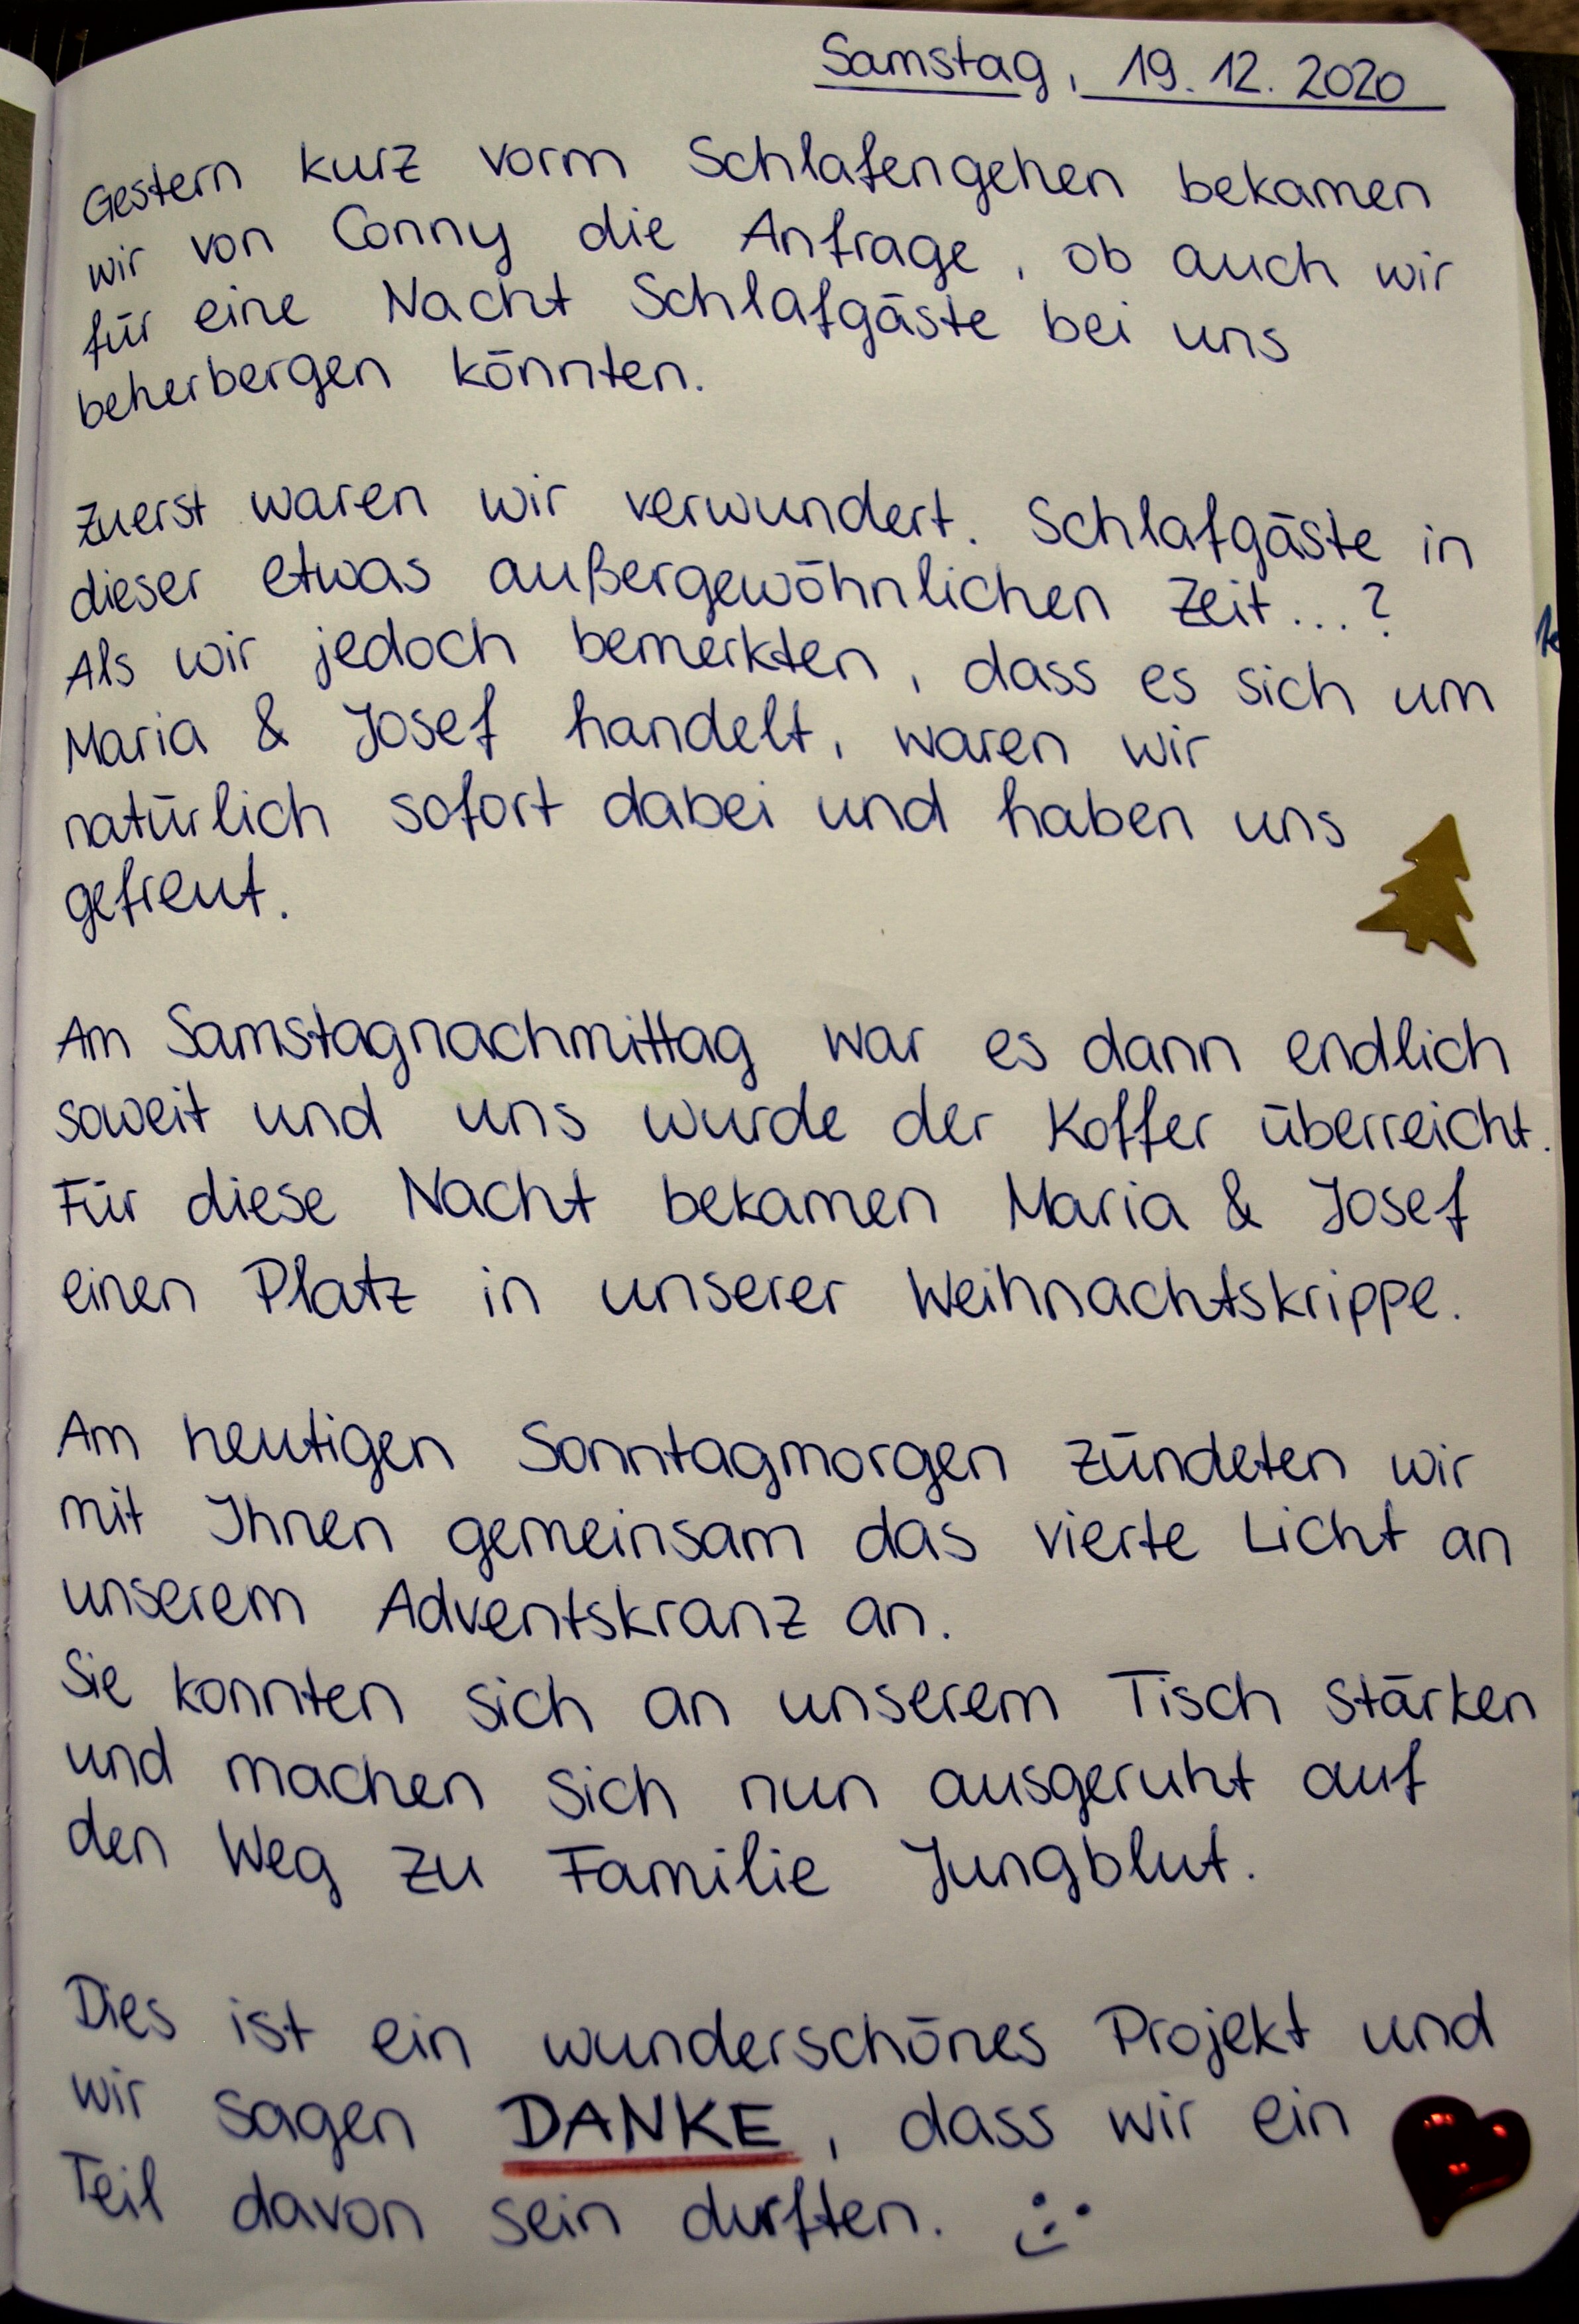 Samstag, 19.12.2020
Gestern kurz vorm Schlafengehen bekamen
wir von Conny die Anfrage, ob auch wir
für eine Nacht Schlafgäste bei uns
beherbergen könnten.
Zuerst waren wir verwundert. Schlafgäste in
dieser etwas außergewöhnlichen Zeit...?
Als wir jedoch bemerkten, dass es sich um
Maria & Josef handelt, waren wir
natürlich sofort dabei und haben uns
gefreut.
Am Samstagnachmittag war es dann endlich
soweit und uns wurde der Koffer überreicht.
Für diese Nacht bekamen Maria & Josef
einen Platz in unserer Weihnachtskrippe.
Am heutigen Sonntagmorgen zündeten wir
mit Ihnen gemeinsam das vierte Licht an
unserem Adventskranz an.
Sie konnten sich an unserem Tisch stärken
und machen sich nun ausgeruht auf
den Weg zu Familie Jungblut.
Dies ist ein wunderschönes Projekt und
wir sagen DANKE, dass wir ein
Teil davon sein durften.